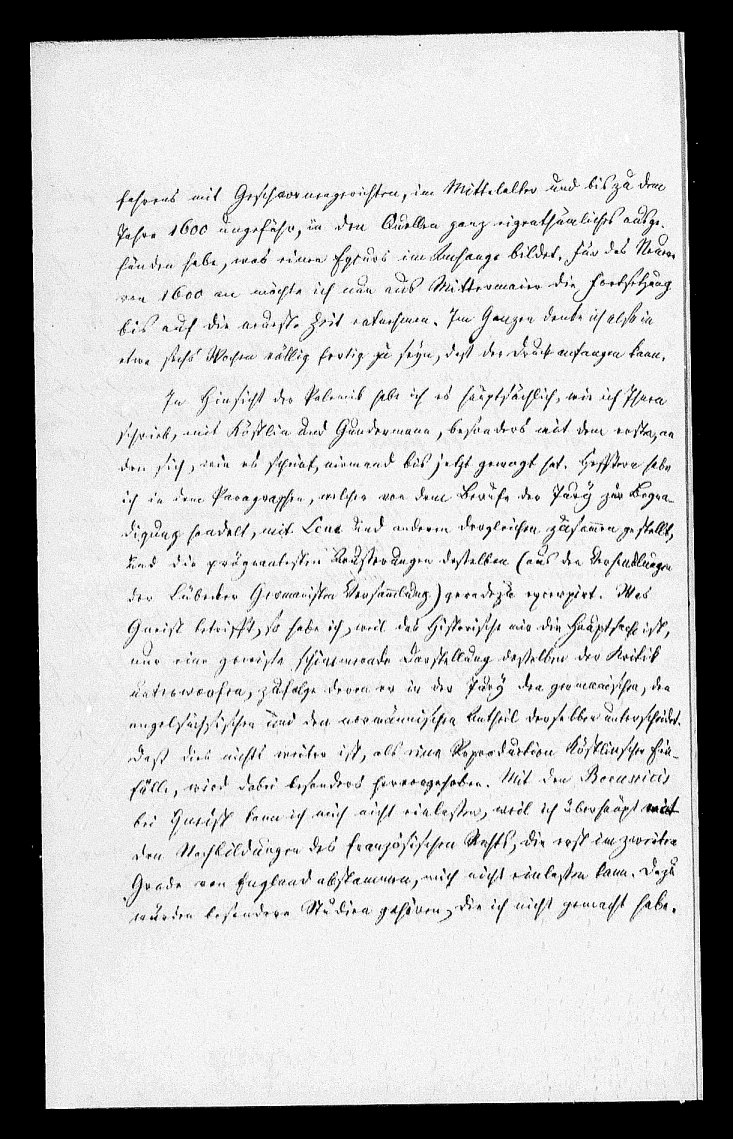 fahrens mit Geschwornengerichten, im Mittelalter und bis zu dem
Jahre 1600 ungefähr, in den Quellen ganz eigenthümliches ausge-
funden habe, was einen Excurs im Anhange bildet. Für das Neuere
von 1600 an möchte ich nun aus Mittermaier die Fortsetzung
bis auf die neueste Zeit entnehmen. Im Ganzen denke ich also in
etwa sechs Wochen völlig fertig zu seyn, daß der Druck anfangen kann.
In Hinsicht der Polemik habe ich es hauptsächlich, wie ich Ihnen
schrieb, mit Köstlin und Gundermann, besonders mit dem ersten, an
den sich, wie es scheint, niemand bis jetzt gewagt hat. Hefftern habe
ich in dem Paragraphen, welcher von dem Berufe der Jury zur Begna-
digung handelt, mit Leue und anderen dergleichen zusammen gestellt,
und die prägnantesten Aeußerungen desselben (aus den Verhandlungen
der Lübecker Germanisten Versammlung) geradezu excerpirt. Was
Gneist betrifft, so habe ich, weil das Historische mir die Hauptsache ist,
nur eine gewisse schimmernde Darstellung desselben der Kritik
unterworfen, zufolge deren er in der Jury den germanischen, den
angelsächsischen und den normännischen Antheil derselben unterscheidet.
Daß dies nichts weiter ist, als eine Reproduction Köstlinscher Ein-
fälle, wird dabei besonders hervorgehoben. Mit den
bei Gneist kann ich mich nicht einlassen, weil ich überhaupt mit
den Nachbildungen des französischen Rechts, die erst im zweiten
Grade von England abstammen, mich nicht einlassen kann. Dazu
würden besondere Studien gehören, die ich nicht gemacht habe.